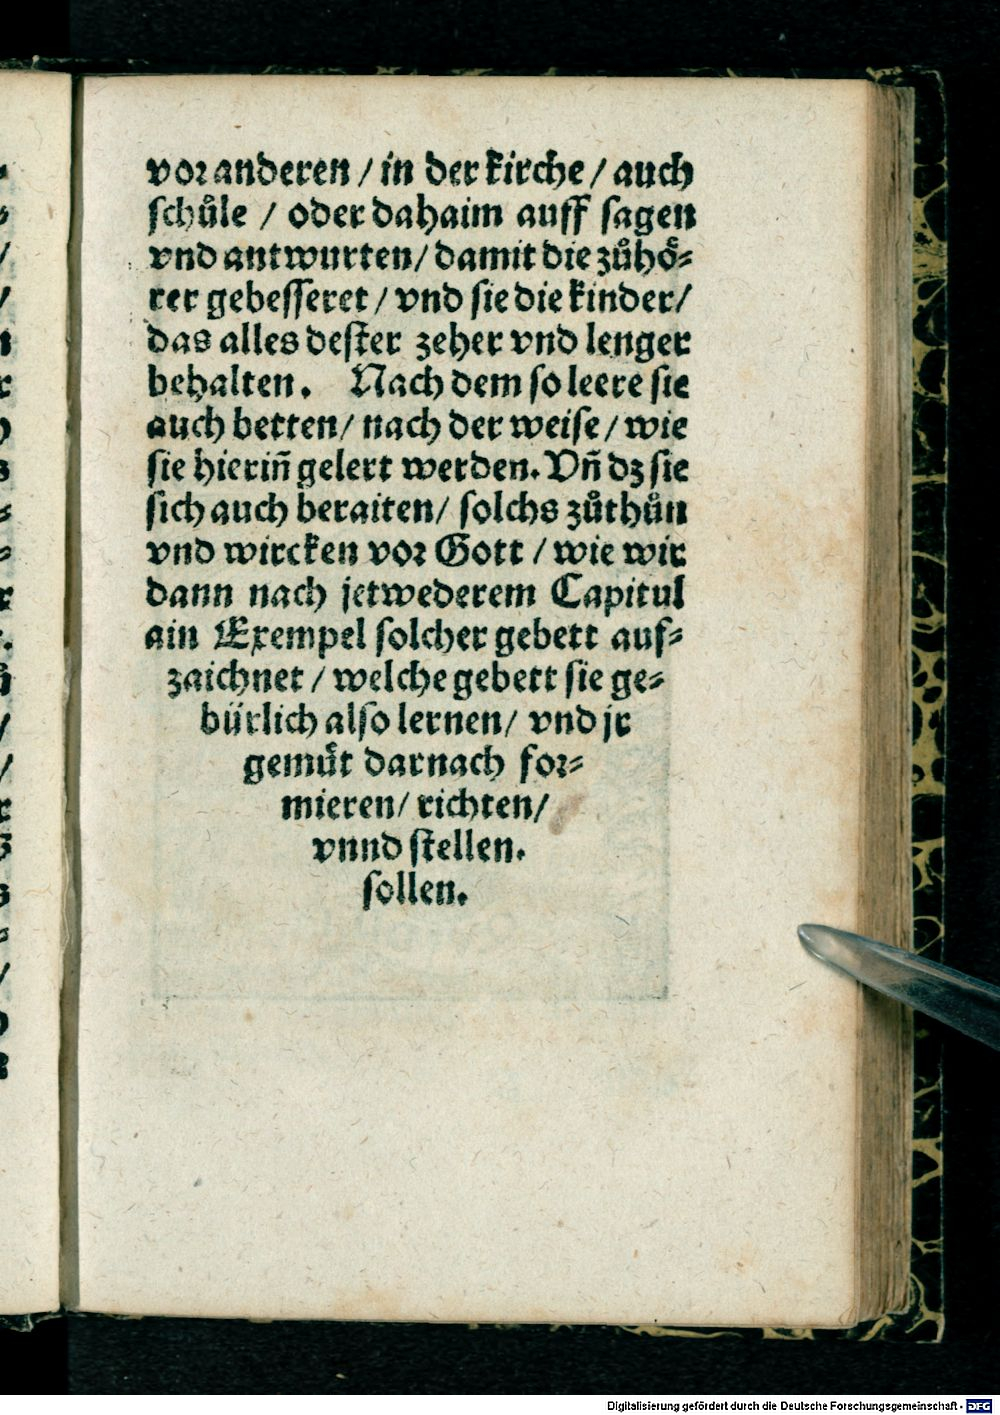 vor anderen / in der kirche / auch
schůle / oder dahaim auff sagen
vnd antwurten / damit die zůhoͤ⸗
rer gebesseret / vnd sie die kinder /
das alles dester zeher vnd lenger
behalten. Nach dem so leere sie
auch betten / nach der weise / wie
sie hieriñ gelert werden. Vñ dz sie
sich auch beraiten / solchs zůthůn
vnd wircken vor Gott / wie wir
dann nach jetwederem Capitul
ain Exempel solcher gebett auf⸗
zaichnet / welche gebett sie ge⸗
bürlich also lernen / vnd jr
gemuͤt darnach for⸗
mieren / richten /
vnnd stellen.
sollen.
Digitalisierung gefördert durch die Deutsche Forschungsgemeinschaft - DFG